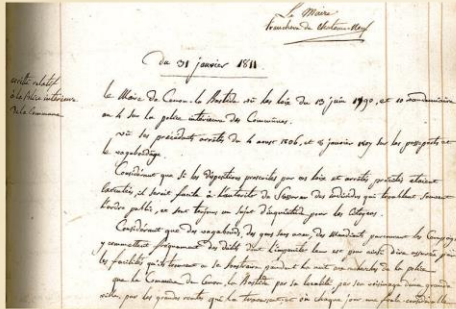 Le Maire
du 31 janvier 1811
arrêté relatif
à la police intérieure
de la Commune
Le Maire de Cenon-la Bastide vû les lois du 13 juin 1790, et 10 vendémiaire
an 4 sur la police intérieure des Communes.
vû ses précédents arrêtés du 4 aout 1806, et 8 janvier 1807 sur les passeports et
le vagabondage.
Considérant que si les dispositions prescrites par ces lois et arrêtés précités étaient
exécutées, il serait facile à l'autorité de des individus qui troublent souvent
l'ordre public, et sont toujours un sujet d'inquiétude pour les Citoyens.
Considérant que des vagabonds, des gens sans aveu, des mendiants parcourent les Campagnes
y commettent fréquemment des délits dont l'impunité leur est pour ainsi dire assurée par
les facilités qu'ils trouvent à se soustraire pendant la nuit aux recherches de la police
que la Commune de Cenon-la Bastide par sa localité par son voisinage d'une grande
ville, par les grandes routes qui la traversent, et où chaque jour une foule considérable